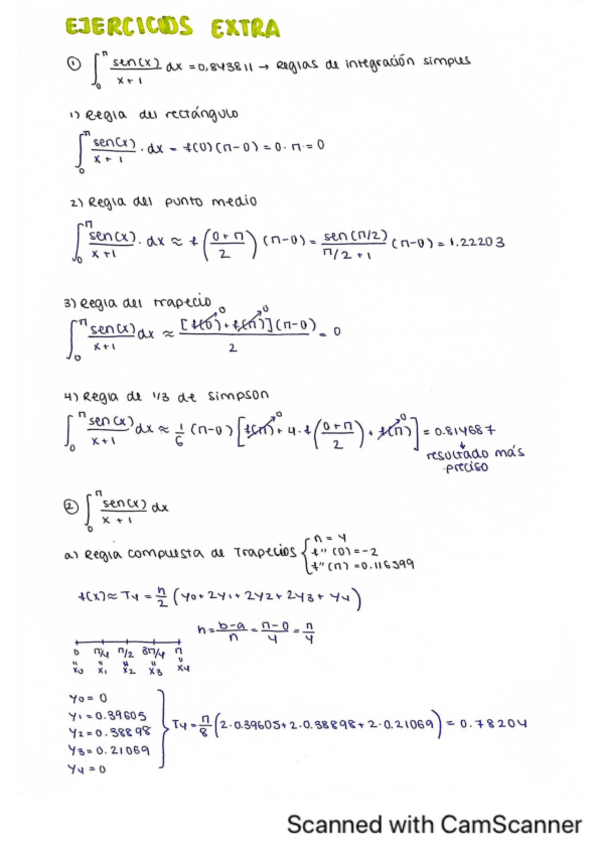 EJERCICIOS EXTRA
① ∫₀^π sen(x)/(x+1) dx = 0,843811 → Reglas de integración simples
1) Regla del rectángulo
∫₀^π sen(x)/(x+1) · dx ≈ f(0)(π-0) = 0·π = 0
2) Regla del punto medio
∫₀^π sen(x)/(x+1) · dx ≈ f((0+π)/2) (π-0) = sen(π/2)/(π/2+1) (π-0) = 1.22203
3) Regla del trapecio
∫₀^π sen(x)/(x+1) dx ≈ [f(0)→0 + f(π)→0](π-0)/2 = 0
4) Regla de 1/3 de Simpson
∫₀^π sen(x)/(x+1) dx ≈ 1/6 (π-0) [f(π)→0 + 4·f((0+π)/2) + f(π)→0] = 0.814687
↓
resultado más
preciso
② ∫₀^π sen(x)/(x+1) dx
a) Regla compuesta de Trapecios { n = 4
f''(0) = -2
f''(π) = 0.116399
f(x) ≈ T4 = h/2 (y0 + 2y1 + 2y2 + 2y3 + y4)
h = (b-a)/n = (π-0)/4 = π/4
0 π/4 π/2 3π/4 π
" " " " "
x0 x1 x2 x3 x4
y0 = 0
y1 = 0.39605
y2 = 0.38898
y3 = 0.21069
y4 = 0
} T4 = π/8 (2·0.39605 + 2·0.38898 + 2·0.21069) = 0.78204
Scanned with CamScanner